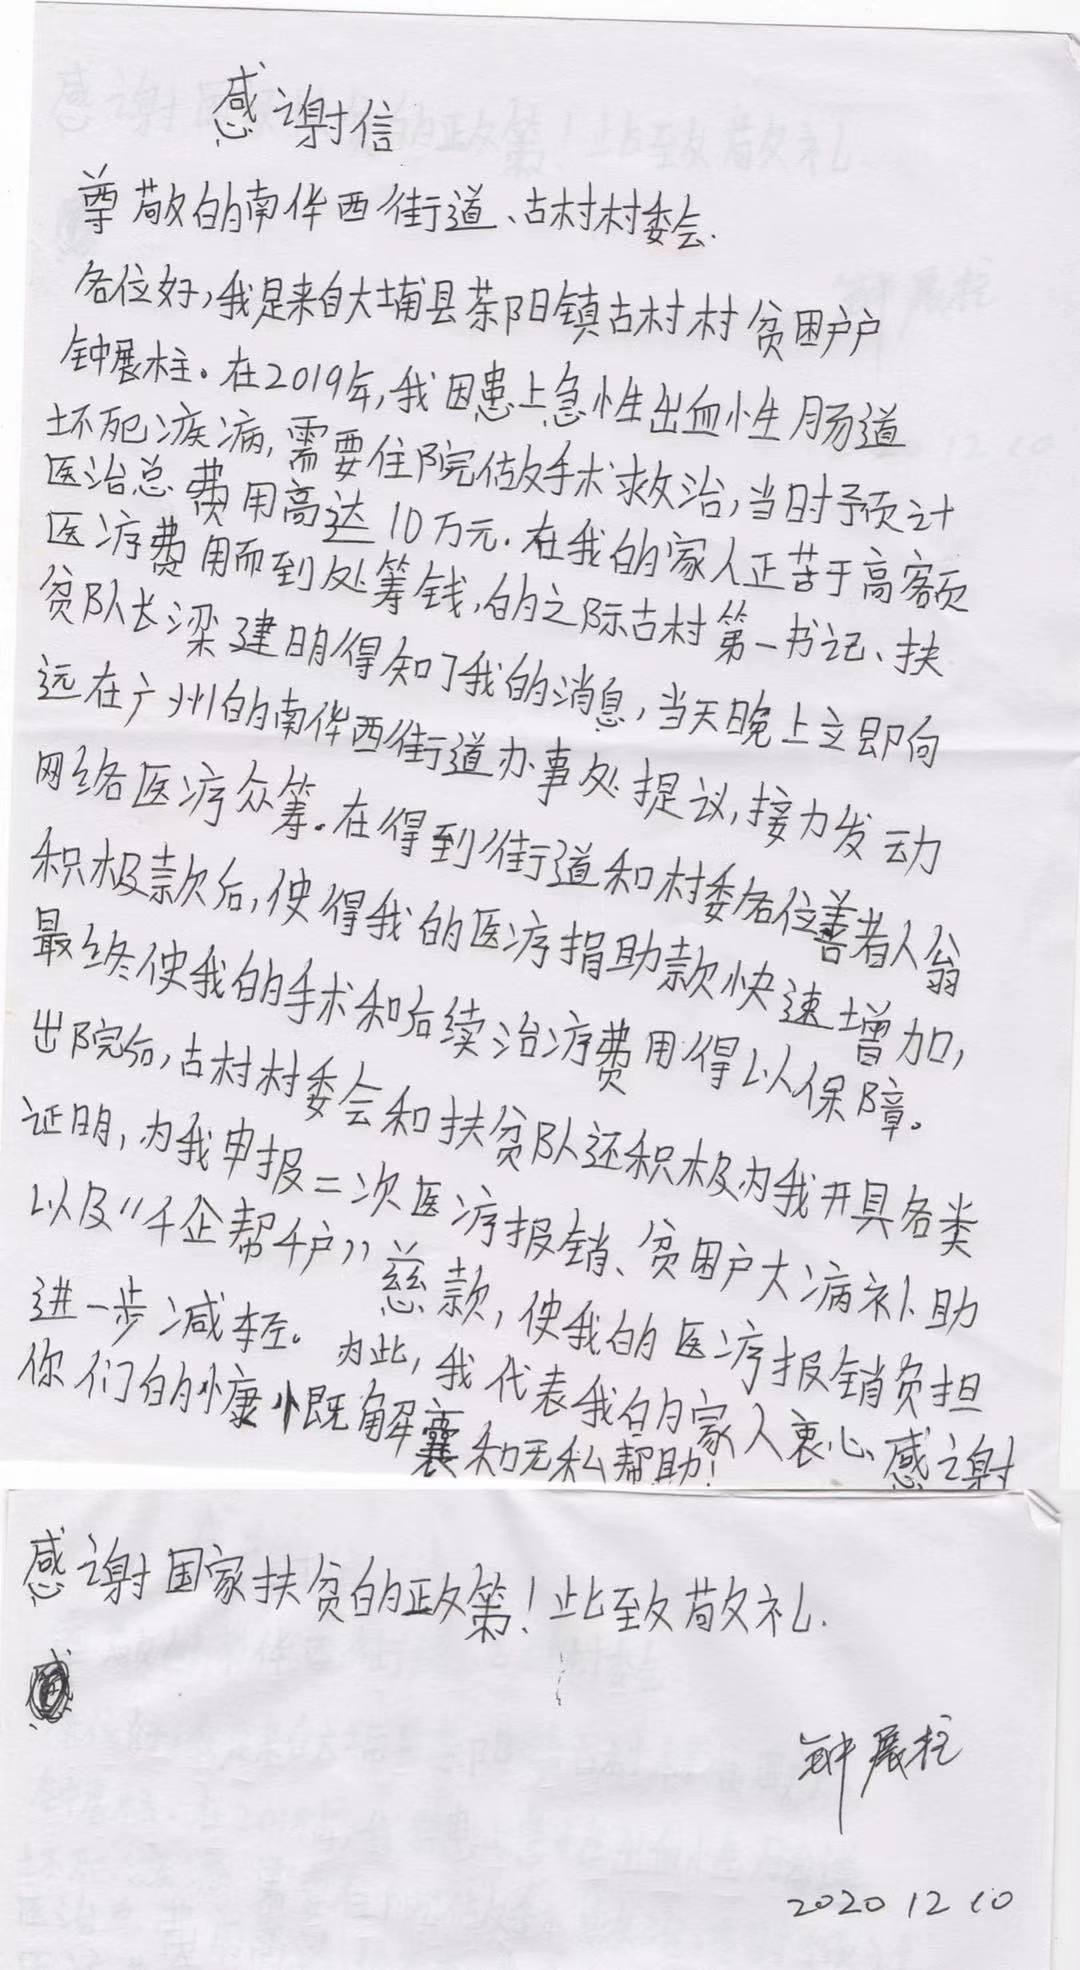 感谢信
尊敬的南华西街道、古村村委会.
各位好,我是来自大埔县茶阳镇古村村贫困户户
钟展柱。在2019年,我因患上急性出血性肠道
坏死疾病,需要住院做手术救治,当时预计
医治总费用高达10万元.在我的家人正苦于高额
医疗费用而到处筹钱,的之际古村第一书记、扶
贫队长梁建明得知了我的消息,当天晚上立即向
远在广州的南华西街道办事处提议,接力发动
网络医疗众筹。在得到街道和村委各位善者人翁
积极款后,使得我的医疗捐助款快速增加,
最终使我的手术和后续治疗费用得以保障。
出院后,古村村委会和扶贫队还积极为我开具各类
证明,为我申报二次医疗报销、贫困户大病补助
以及“千企帮千户”慈款,使我的医疗报销负担
进一步减轻。为此,我代表我的家人衷心感谢
你们的慷慨解囊和无私帮助!
感谢国家扶贫的政策!此致敬礼.
钟展柱
2020 12 10